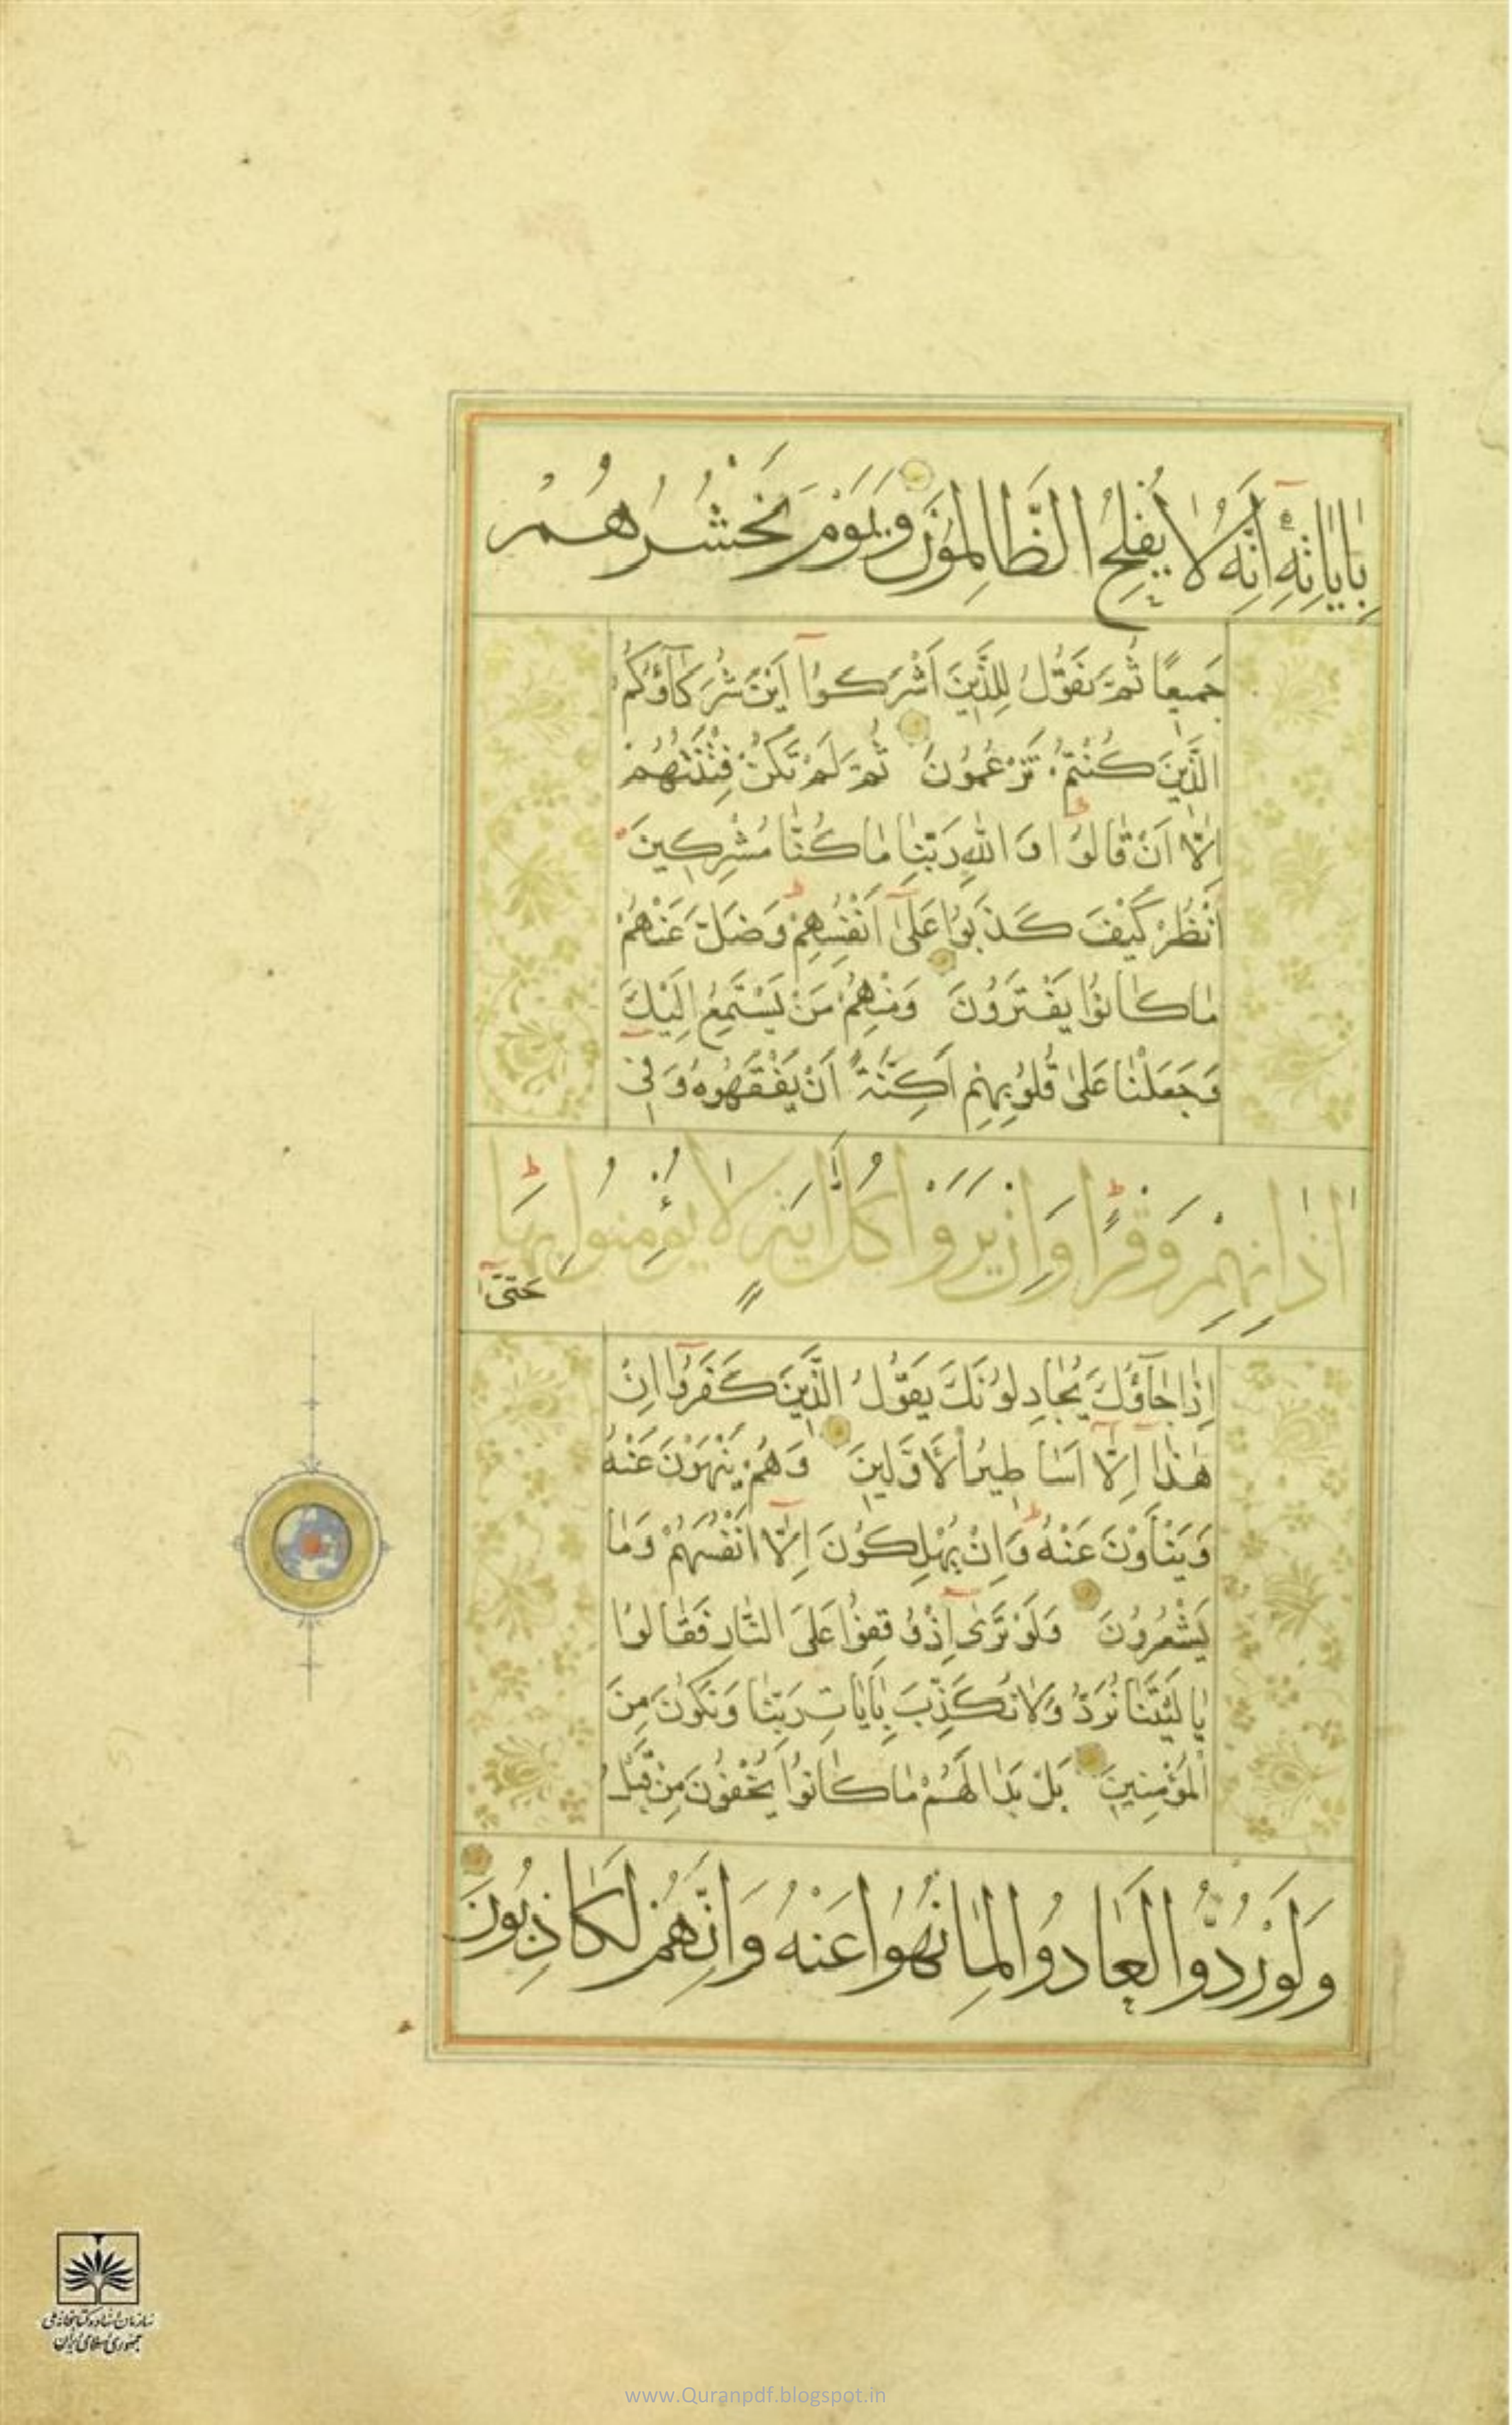 بِاٰيَاتِهِ اِنَّهُ لَا يُفْلِحُ الظَّالِمُونَ وَيَوْمَ نَحْشُرُهُمْ
جَمِيعًا ثُمَّ نَقُولُ لِلَّذِينَ اَشْرَكُوا اَيْنَ شُرَكَآؤُكُمُ
الَّذِينَ كُنْتُمْ تَزْعُمُونَ ثُمَّ لَمْ تَكُنْ فِتْنَتُهُمْ
اِلَّا اَنْ قَالُوا وَاللّٰهِ رَبِّنَا مَا كُنَّا مُشْرِكِينَ
اُنْظُرْ كَيْفَ كَذَبُوا عَلٰى اَنْفُسِهِمْ وَضَلَّ عَنْهُمْ
مَا كَانُوا يَفْتَرُونَ وَمِنْهُمْ مَنْ يَسْتَمِعُ اِلَيْكَ
وَجَعَلْنَا عَلٰى قُلُوبِهِمْ اَكِنَّةً اَنْ يَفْقَهُوهُ وَفِى
اٰذَانِهِمْ وَقْرًا وَاِنْ يَرَوْا كُلَّ اٰيَةٍ لَا يُؤْمِنُوا بِهَا
حَتّٰى
اِذَا جَآؤُكَ يُجَادِلُونَكَ يَقُولُ الَّذِينَ كَفَرُوا اِنْ
هٰذَا اِلَّا اَسَاطِيرُ الْاَوَّلِينَ وَهُمْ يَنْهَوْنَ عَنْهُ
وَيَنْاَوْنَ عَنْهُ وَاِنْ يُهْلِكُونَ اِلَّا اَنْفُسَهُمْ وَمَا
يَشْعُرُونَ وَلَوْ تَرٰى اِذْ وُقِفُوا عَلَى النَّارِ فَقَالُوا
يَا لَيْتَنَا نُرَدُّ وَلَا نُكَذِّبَ بِاٰيَاتِ رَبِّنَا وَنَكُونَ مِنَ
الْمُؤْمِنِينَ بَلْ بَدَا لَهُمْ مَا كَانُوا يُخْفُونَ مِنْ قَبْلُ
وَلَوْ رُدُّوا لَعَادُوا لِمَا نُهُوا عَنْهُ وَاِنَّهُمْ لَكَاذِبُونَ
سازمان اسناد و کتابخانه ملی
جمهوری اسلامی ایران
www.Quranpdf.blogspot.in